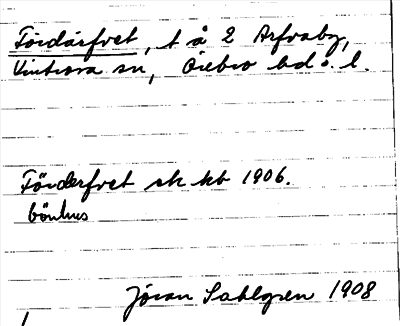 Fördärfvet, t å 2 Arfvaby,
Vintrosa sn, Örebro hd o. l.
Förderfvet sk kb 1906.
bönhus
Jöran Sahlgren 1908